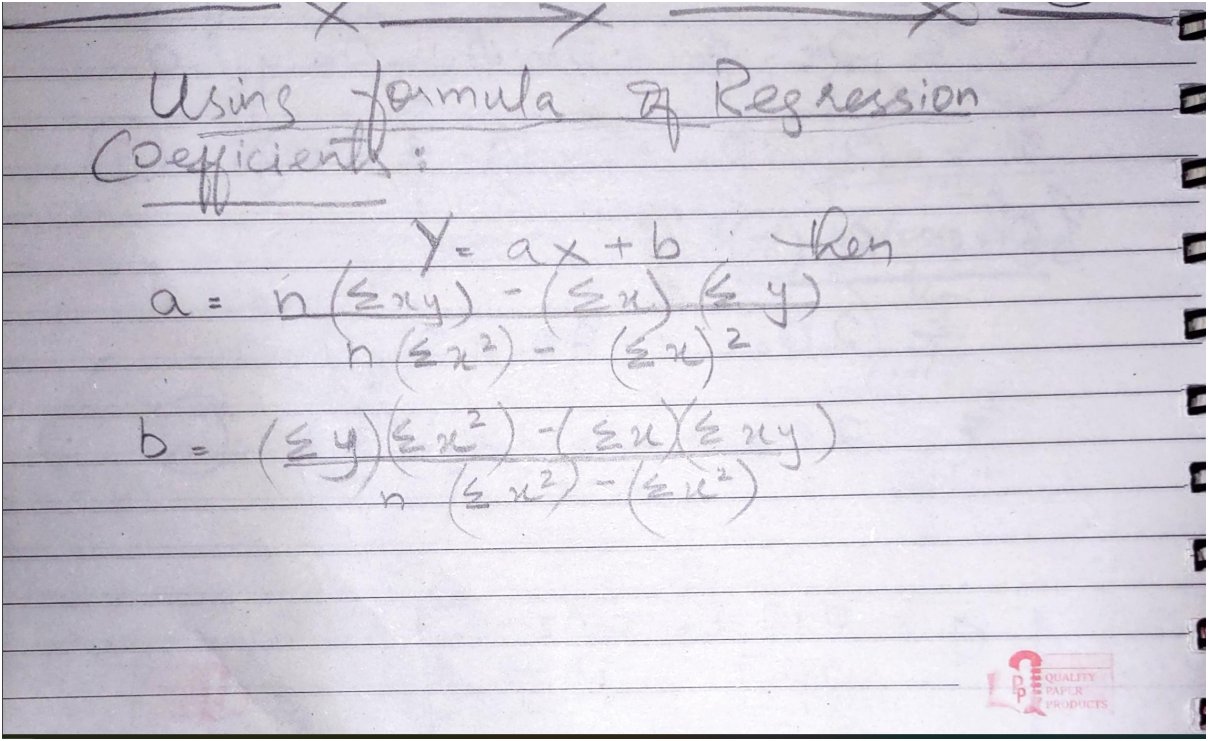 Using formula of Regression
Coefficients:
Y = ax + b ; then
a = n(Σxy) - (Σx)(Σy)
n(Σx²) - (Σx)²
b = (Σy)(Σx²) - (Σx)(Σxy)
n(Σx²) - (Σx²)
PP
QUALITY
PAPER
PRODUCTS